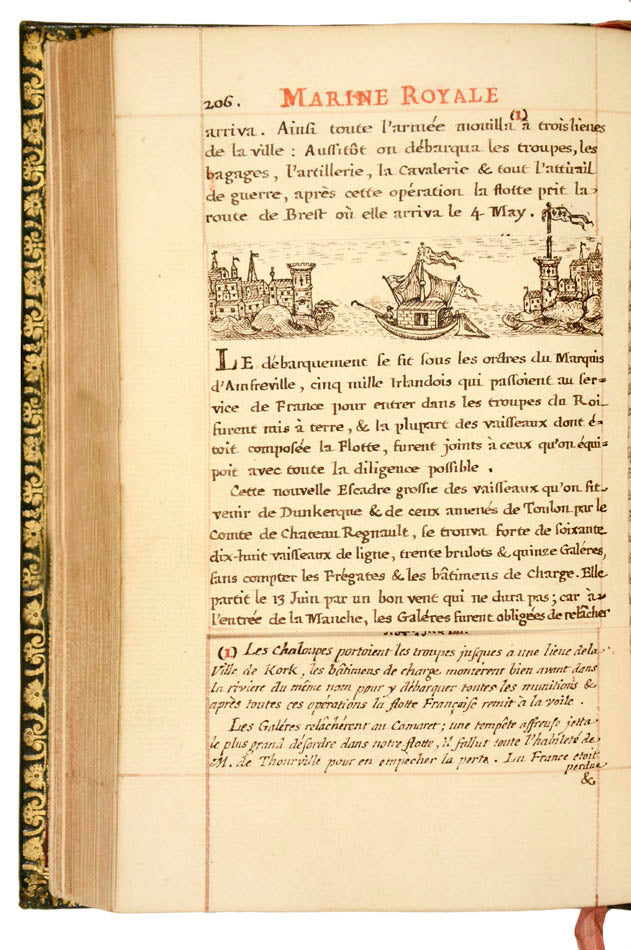 206. MARINE ROYALE
arriva. Ainsi toute l'armée mouilla (1) à trois lieues
de la ville : Aussitôt on débarqua les troupes, les
bagages, l'artillerie, la Cavalerie & tout l'attirail
de guerre, après cette opération la flotte prit la
route de Brest où elle arriva le 4 May.
LE débarquement se fit sous les ordres du Marquis
d'Amfreville, cinq mille Irlandois qui passoient au ser=
vice de France pour entrer dans les troupes du Roi
furent mis à terre, & la plupart des vaisseaux dont é=
toit composée la Flotte, furent joints à ceux qu'on équi=
poit avec toute la diligence possible.
Cette nouvelle Escadre grossie des vaisseaux qu'on fit
venir de Dunkerque & de ceux amenés de Toulon par le
Comte de Chateau Regnault, se trouva forte de soixante
dix-huit vaisseaux de ligne, trente brulots & quinze Galéres,
sans compter les Frégates & les bâtimens de Charge. Elle
partit le 13 Juin par un bon vent qui ne dura pas; car à
l'entrée de la Manche, les Galéres furent obligées de relâcher
(1) Les Chaloupes portoient les troupes jusques à une lieue de la
Ville de Kork, les bâtimens de charge montèrent bien avant dans
la riviere du même nom pour y débarquer toutes les munitions &
après toutes ces opérations la flotte Française remit à la voile.
Les Galéres relâchérent au Camaret; une tempête affreuse jetta
le plus grand désordre dans notre flotte, il fallut toute l'habileté de
M. de Thourville pour en empecher la perte. La France étoit
perdue
&